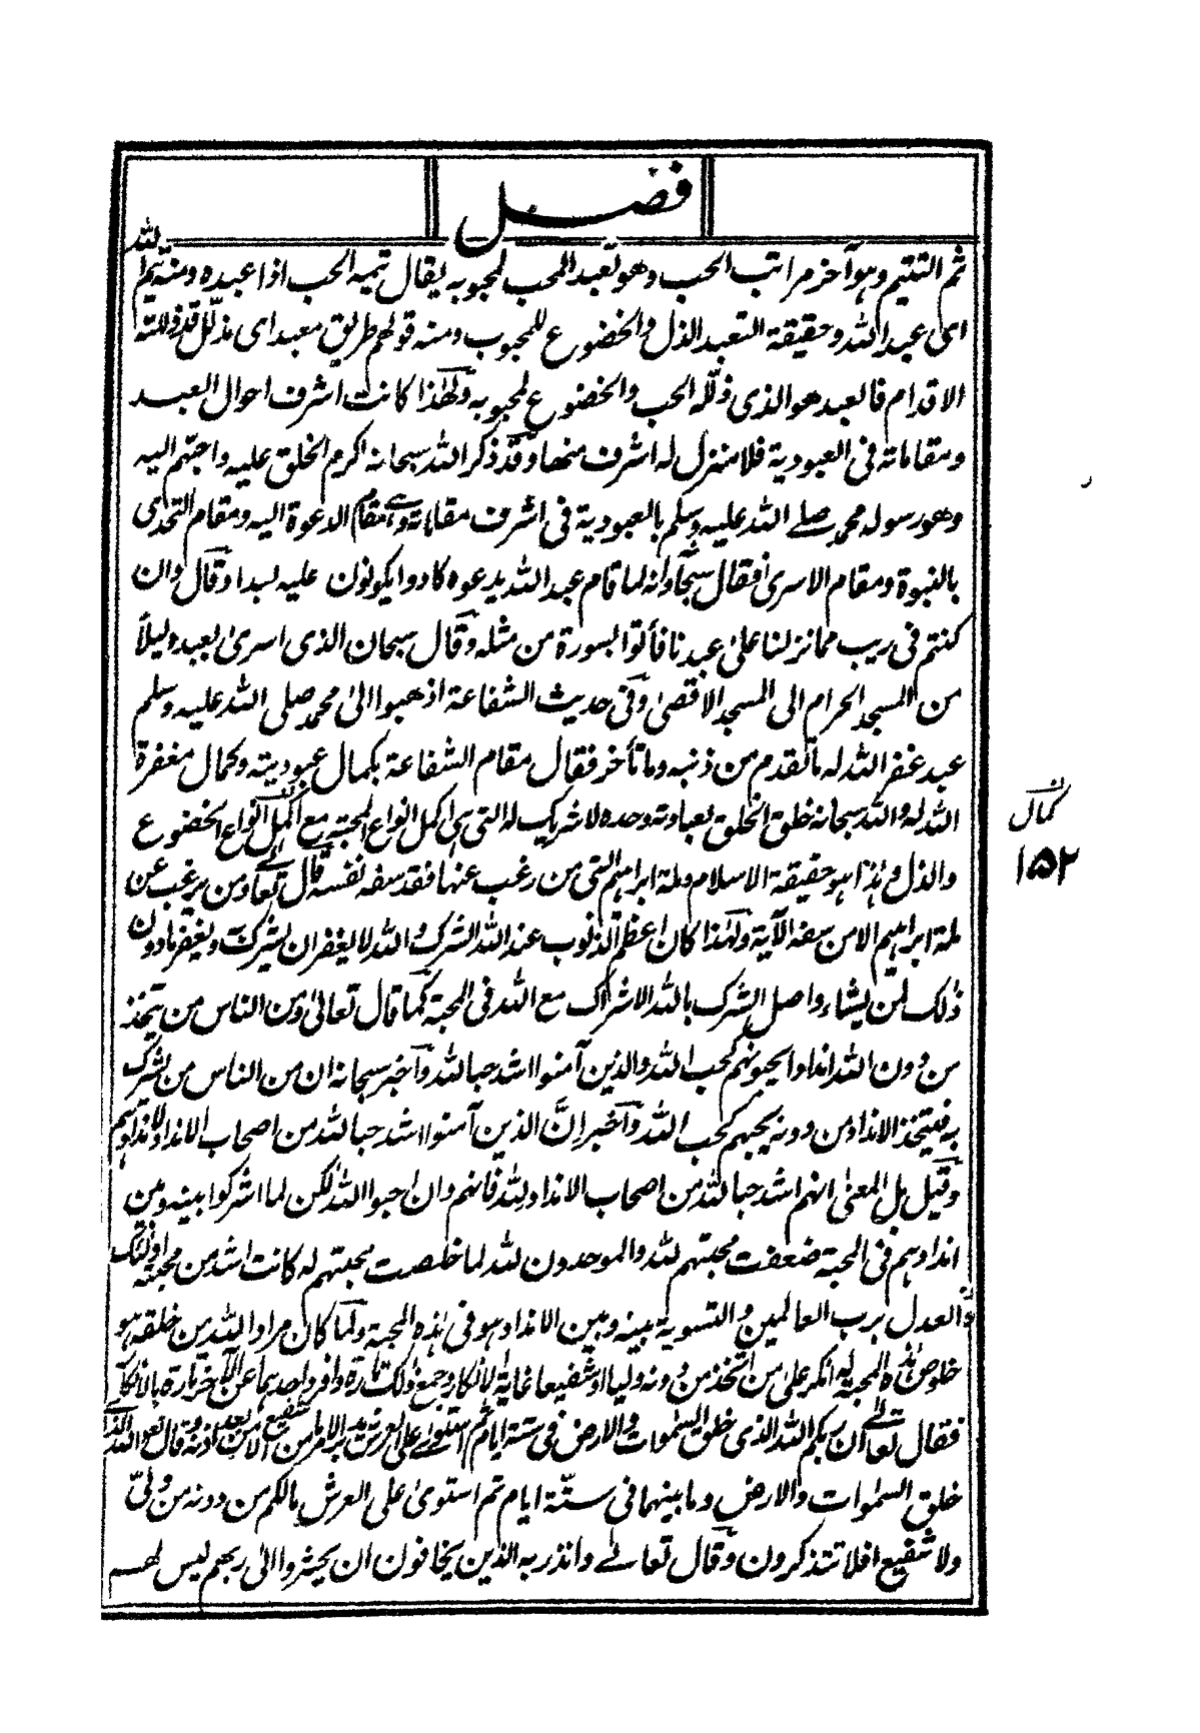 فصل
ثم التتيم وهو آخر مراتب الحب وهو تعبد المحب لمحبوبه يقال تيمه الحب اذا عبده ومنه تيم الله
اى عبد الله وحقيقة التعبد الذل والخضوع للمحبوب ومنه قولهم طريق معبد اى مذلل قد ذللته
الاقدام فالعبد هو الذى ذلله الحب والخضوع لمحبوبه ولهذا كانت اشرف احوال العبد
ومقاماته فى العبودية فلا منزل له اشرف منها وقد ذكر الله سبحانه اكرم الخلق عليه واحبهم اليه
وهو رسوله محمد صلے الله عليه وسلم بالعبودية فى اشرف مقاماته وهے مقام الدعوة اليه ومقام التحدى
بالنبوة ومقام الاسرى فقال سبحانه وانه لما قام عبد الله يدعوه كادوا يكونون عليه لبدا وقال وان
كنتم فى ريب مما نزلنا على عبدنا فأتوا بسورة من مثله وقال سبحان الذى اسرى بعبده ليلاً
من المسجد الحرام الى المسجد الاقصى وفى حديث الشفاعة اذهبوا الى محمد صلى الله عليه وسلم
عبد غفر الله له ما تقدم من ذنبه وما تأخر فقال مقام الشفاعة بكمال عبوديته وكمال مغفرة
الله له والله سبحانه خلق الخلق لعبادته وحده لا شريك له التى هى اكمل انواع المحبة مع اكمل انواع الخضوع
والذل وهذا هو حقيقة الاسلام وملة ابراهيم التى من رغب عنها فقد سفه نفسه قال تعالے ومن يرغب عن
ملة ابراهيم الا من سفه الآية ولهذا كان اعظم الذنوب عند الله الشرك والله لا يغفر ان يشرك به ويغفر ما دون
ذلك لمن يشاء واصل الشرك بالله الاشراك مع الله فى المحبة كما قال تعالى ومن الناس من يتخذ
من دون الله اندادا يحبونهم كحب الله والذين آمنوا اشد حبا لله وآخبر سبحانه ان من الناس من يشرك
به فيتخذ الانداد من دونه يحبهم كحب الله وآخبر انَّ الذين آمنوا اشد حبا لله من اصحاب الانداد لاندادهم
وقيل بل المعنى انهم اشد حبا لله من اصحاب الانداد لله فانهم وان احبوا الله لكن لما اشركوا بينه وبين
اندادهم فى المحبة ضعفت محبتهم لله والموحدون لله لما خلصت محبتهم له كانت اشد من محبة اولئك
والعدل برب العالمين والتسوية بينه وبين الانداد هو فى هذه المحبة ولما كان مراد الله من خلقه هو
خلوص هذه المحبة له انكر على من اتخذ من دونه وليا او شفيعا غاية الانكار وجمع ذلك تارة وافرد احدهما عن الآخر تارة بالانكار
فقال تعالے ان ربكم الله الذى خلق السموات والارض فى ستة ايام ثم استوے على العرش يدبر الامر ما من شفيع الا من بعد اذنه وقال تعالى الله الذى
خلق السموات والارض وما بينهما فى ستّة ايام ثم استوى على العرش مالكم من دونه من ولىّ
ولا شفيع افلا تتذكرون وقال تعالے وانذر به الذين يخافون ان يحشروا الى ربهم ليس لهم
كمال
١٥٢